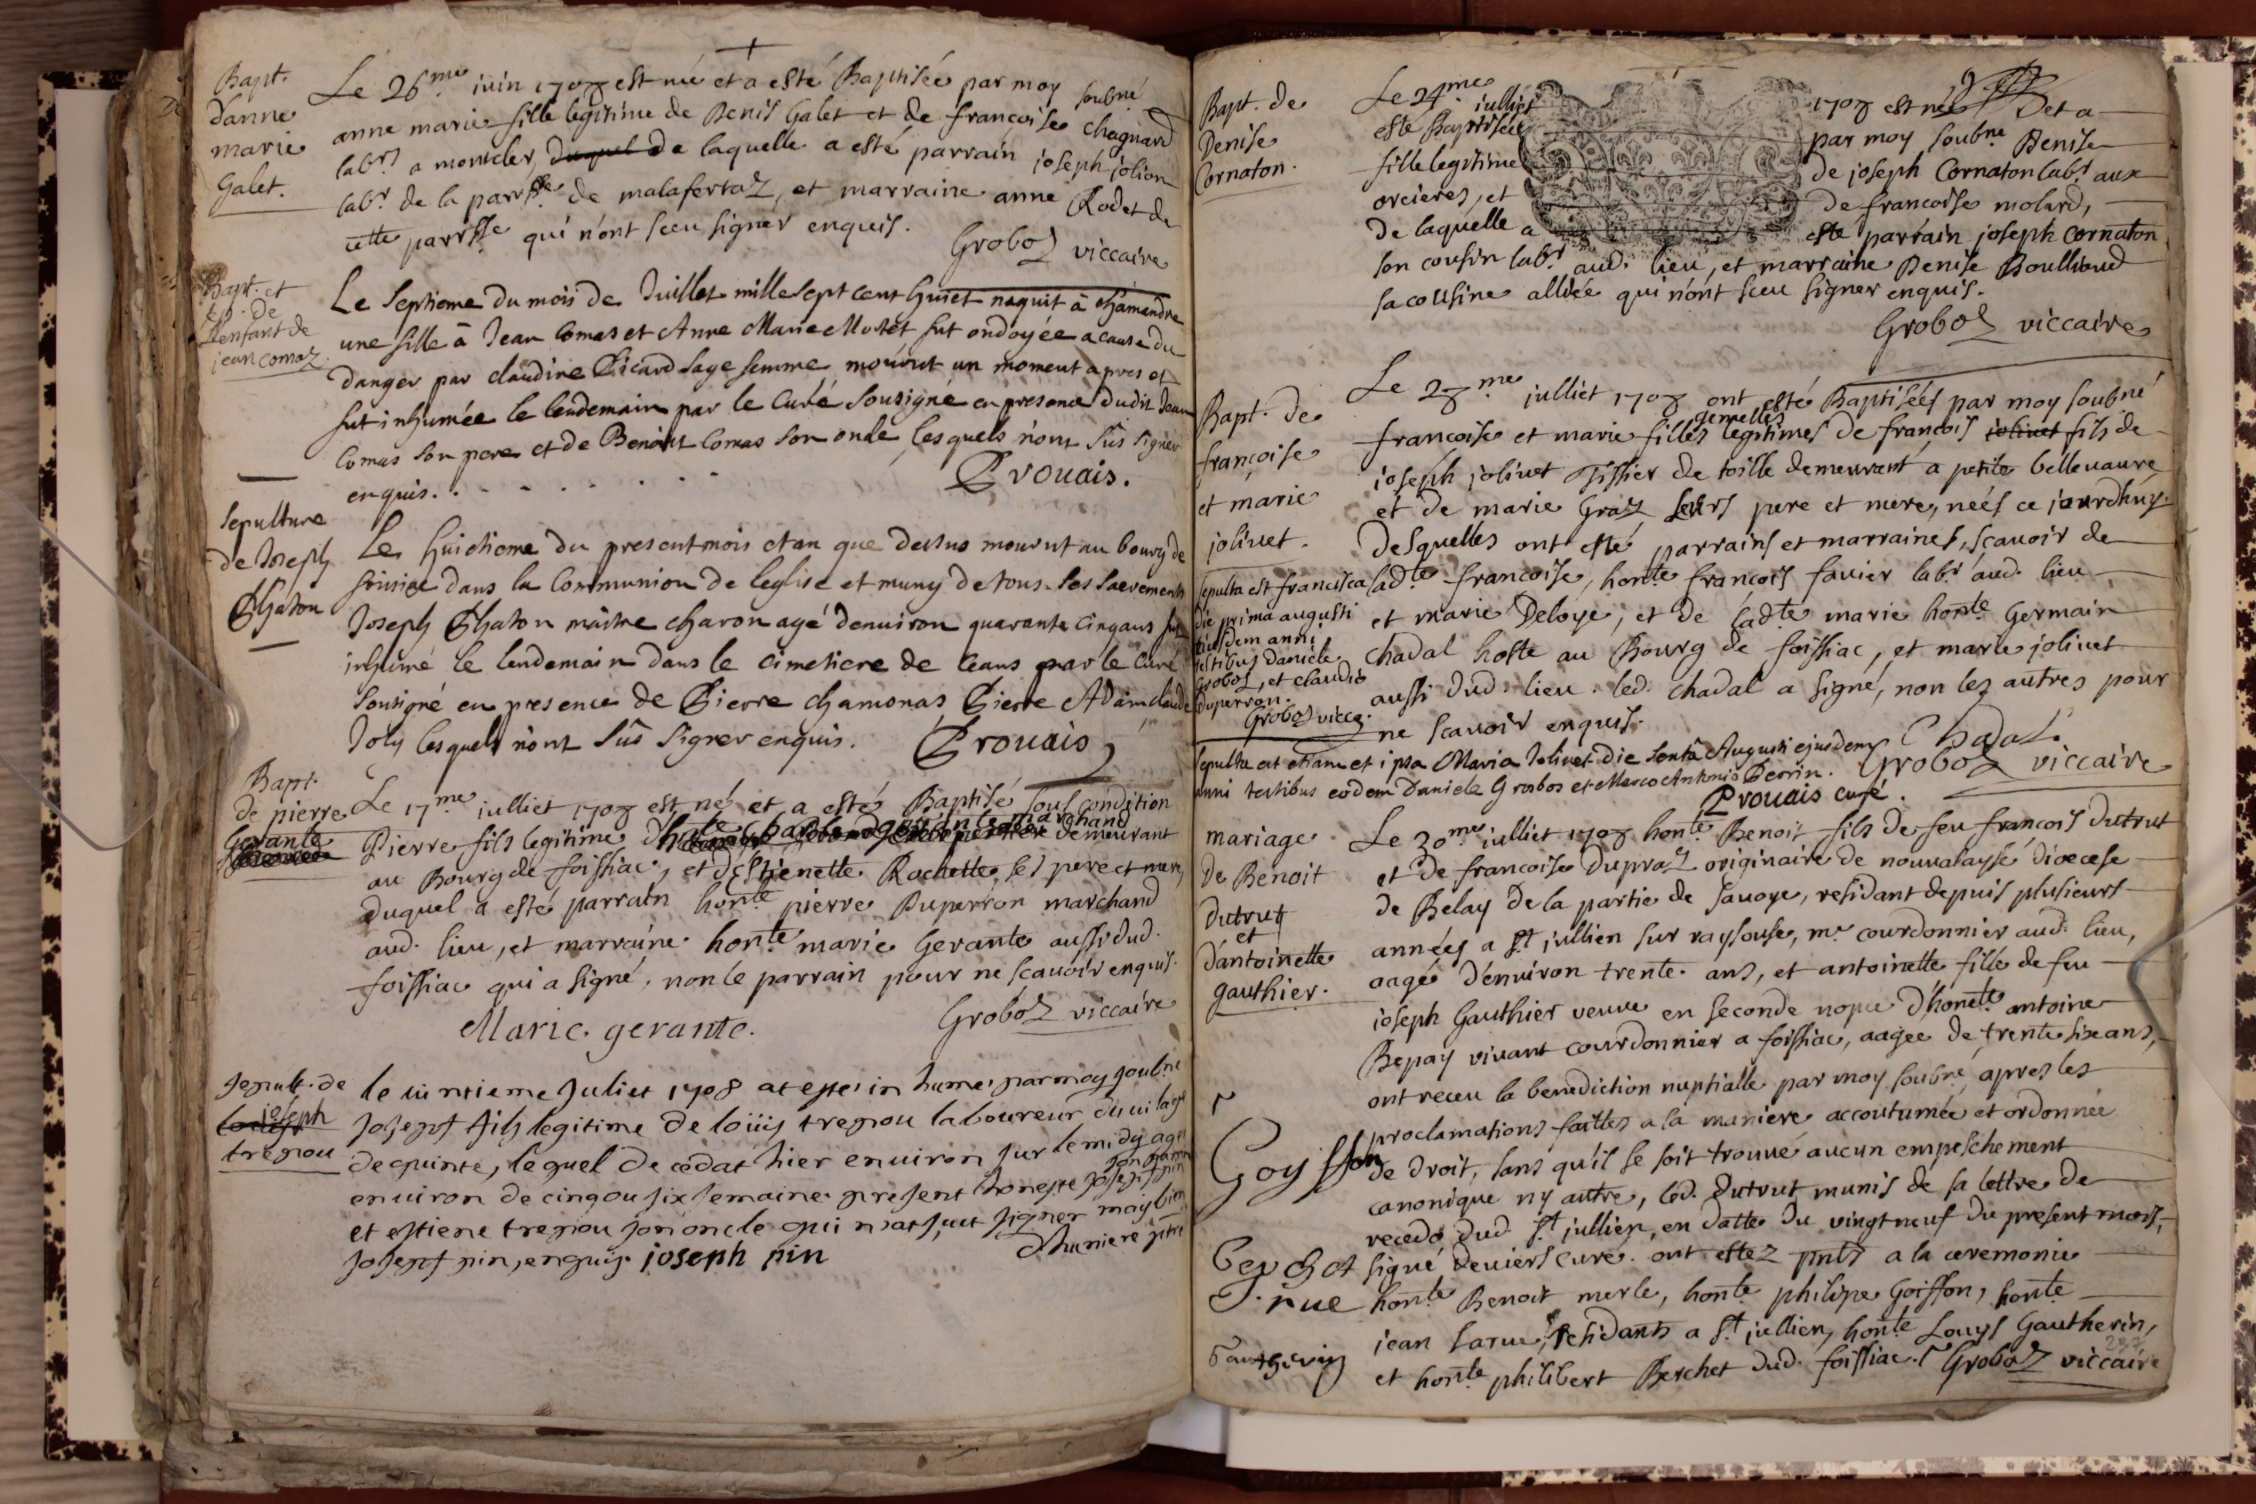 Bapt.
d'anne
marie
Galet.
Le 26.me iuin 1708 est née et a esté Baptisée par moy soubné
anne marie fille legitime de Denis Galet et de françoise chagnard
labrs a montcler, duquel de laquelle a esté parrain joseph jolion
labr de la parrsse de malafertaz, et marraine anne Rodet de
cette parrsse qui n'ont sceu signer enquis.
Groboz viccaire
Bapt. et
de
l'enfant de
jean comaz.
Le Septieme du mois de Juillet mille sept cent huict naquit à chamandre
une fille à Jean Comas et Anne Marie Mutet fut ondoyée a cause du
danger par claudine Picard sage femme mourut un moment apres et
fut inhumée le lendemain par le Curé Sousigné en presence dudit Jean
Comas son pere et de Benoit Comas son oncle, lesquels n'ont sus signer
enquis.
Prouais.
Sepulture
de Joseph
Chaton
Le huictieme du present mois et an que dessus mourut au bourg de
foissiac dans la Communion de leglise et muny de tous ses sacrements
Joseph Chaton maitre charon agé denuiron quarante cinq ans fut
inhumé le lendemain dans le cimetiere de ceans par le Curé
Sousigné en presence de Pierre chamonas Pierre Adam claude
Joly lesquels n'ont sus signer enquis. Prouais
Bapt.
de pierre
Gerante
Le 17.me iulliet 1708 est né et a esté Baptisé sous condition
Pierre fils legitime marchand demeurant
au Bourg de foissiac, et d'Estienette Rochette, ses pere et mere,
Duquel a esté parrain honte pierre Duperron marchand
aud. lieu, et marraine honte marie Gerante aussi dud.
foissiac qui a signé, non le parrain pour ne scauoir enquis.
Marie gerante.
Groboz viccaire
sepult. de
joseph
trepou
le uintieme Juliet 1708 at este inhumé par moy soubné
Joseph fils legitime de loüis trepou laboureur du uilage
de epinte, lequel decedat hier enuiron sur le midy agé
enuiron de cinq ou six semaine present honeste Joseph pin
son parrain
et estiene trepou son oncle qui n'at sçut signer mais bien
Joseph pin, enquis. joseph pin
Bapt. de
Denise
Cornaton.
Le 24.me iulliet 1708 est née et a
esté Baptisée par moy soubné Denise
fille legitime de joseph Cornaton labr aux
orcieres, et de francoise molard,
de laquelle a esté parrain joseph Cornaton
son cousin labr aud. lieu, et marraine Denise Boullioud
sa cousine alliée qui n'ont sceu signer enquis.
Groboz viccaire
Bapt. de
françoise
et marie
joliuet.
Le 28.me julliet 1708 ont esté Baptisées par moy soubné
gemelles
francoise et marie filles legitimes de francois joliuet fils de
joseph joliuet Tissier de toille demeurant a petite belleuaure
et de marie Graz leurs pere et mere, nées ce jourdhuy.
Desquelles ont esté parrains et marraines, scauoir de
ladte francoise, honte françois fauier labr aud. lieu
et marie Deloye, et de ladte marie honte Germain
chadal hoste au Bourg de foissiac, et marie joliuet
aussi dud. lieu. led. chadal a signé, non les autres pour
ne scauoir enquis.
Chadal.
Groboz viccaire
Sepulta est francisca
die prima augusti
eiusdem anni
testibus daniele
Groboz, et claudio
duperron.
Groboz vicce.
Sepulta est etiam et ipsa Maria Joliuet die sexta Augusti ejusdem
anni testibus eodem Daniele Grosbos et Marco Antonio Perrin.
Prouais curé.
mariage
de Benoit
Dutrut
et
d'antoinette
gauthier.
Le 30.me iulliet 1708 honte Benoit fils de feu françois Dutrut
et de francoise Dupraz originaire de nouualayse dioecese
de Belay de la partie de Sauoye, residant depuis plusieurs
années a St jullien sur raysouse, me courdonnier aud. lieu,
aagé d'enuiron trente ans, et antoinette fille de feu
joseph Gauthier veuue en seconde nopce d'honete antoine
Bepay viuant courdonnier a foissiac, aagée de trente six ans,
ont receu la benediction nuptialle par moy soubné, apres les
proclamations faittes a la maniere accoutumée et ordonnée
de droit, sans qu'il se soit trouué aucun empeschement
canonique ny autre, led. Dutrut munis de sa lettre de
recedo dud. St jullien, en datte du vingt neuf du present mois,
signé Deuiers curé. ont estez pnts a la ceremonie
honte Benoit merle, honte philipe Goiffon, honte
jean Larue, residants a St jullien, honte Louys Gautherin,
et honte philibert Berchet dud. foissiac. Groboz viccaire
Goyffon
Berchet
J. rue
Gautherin